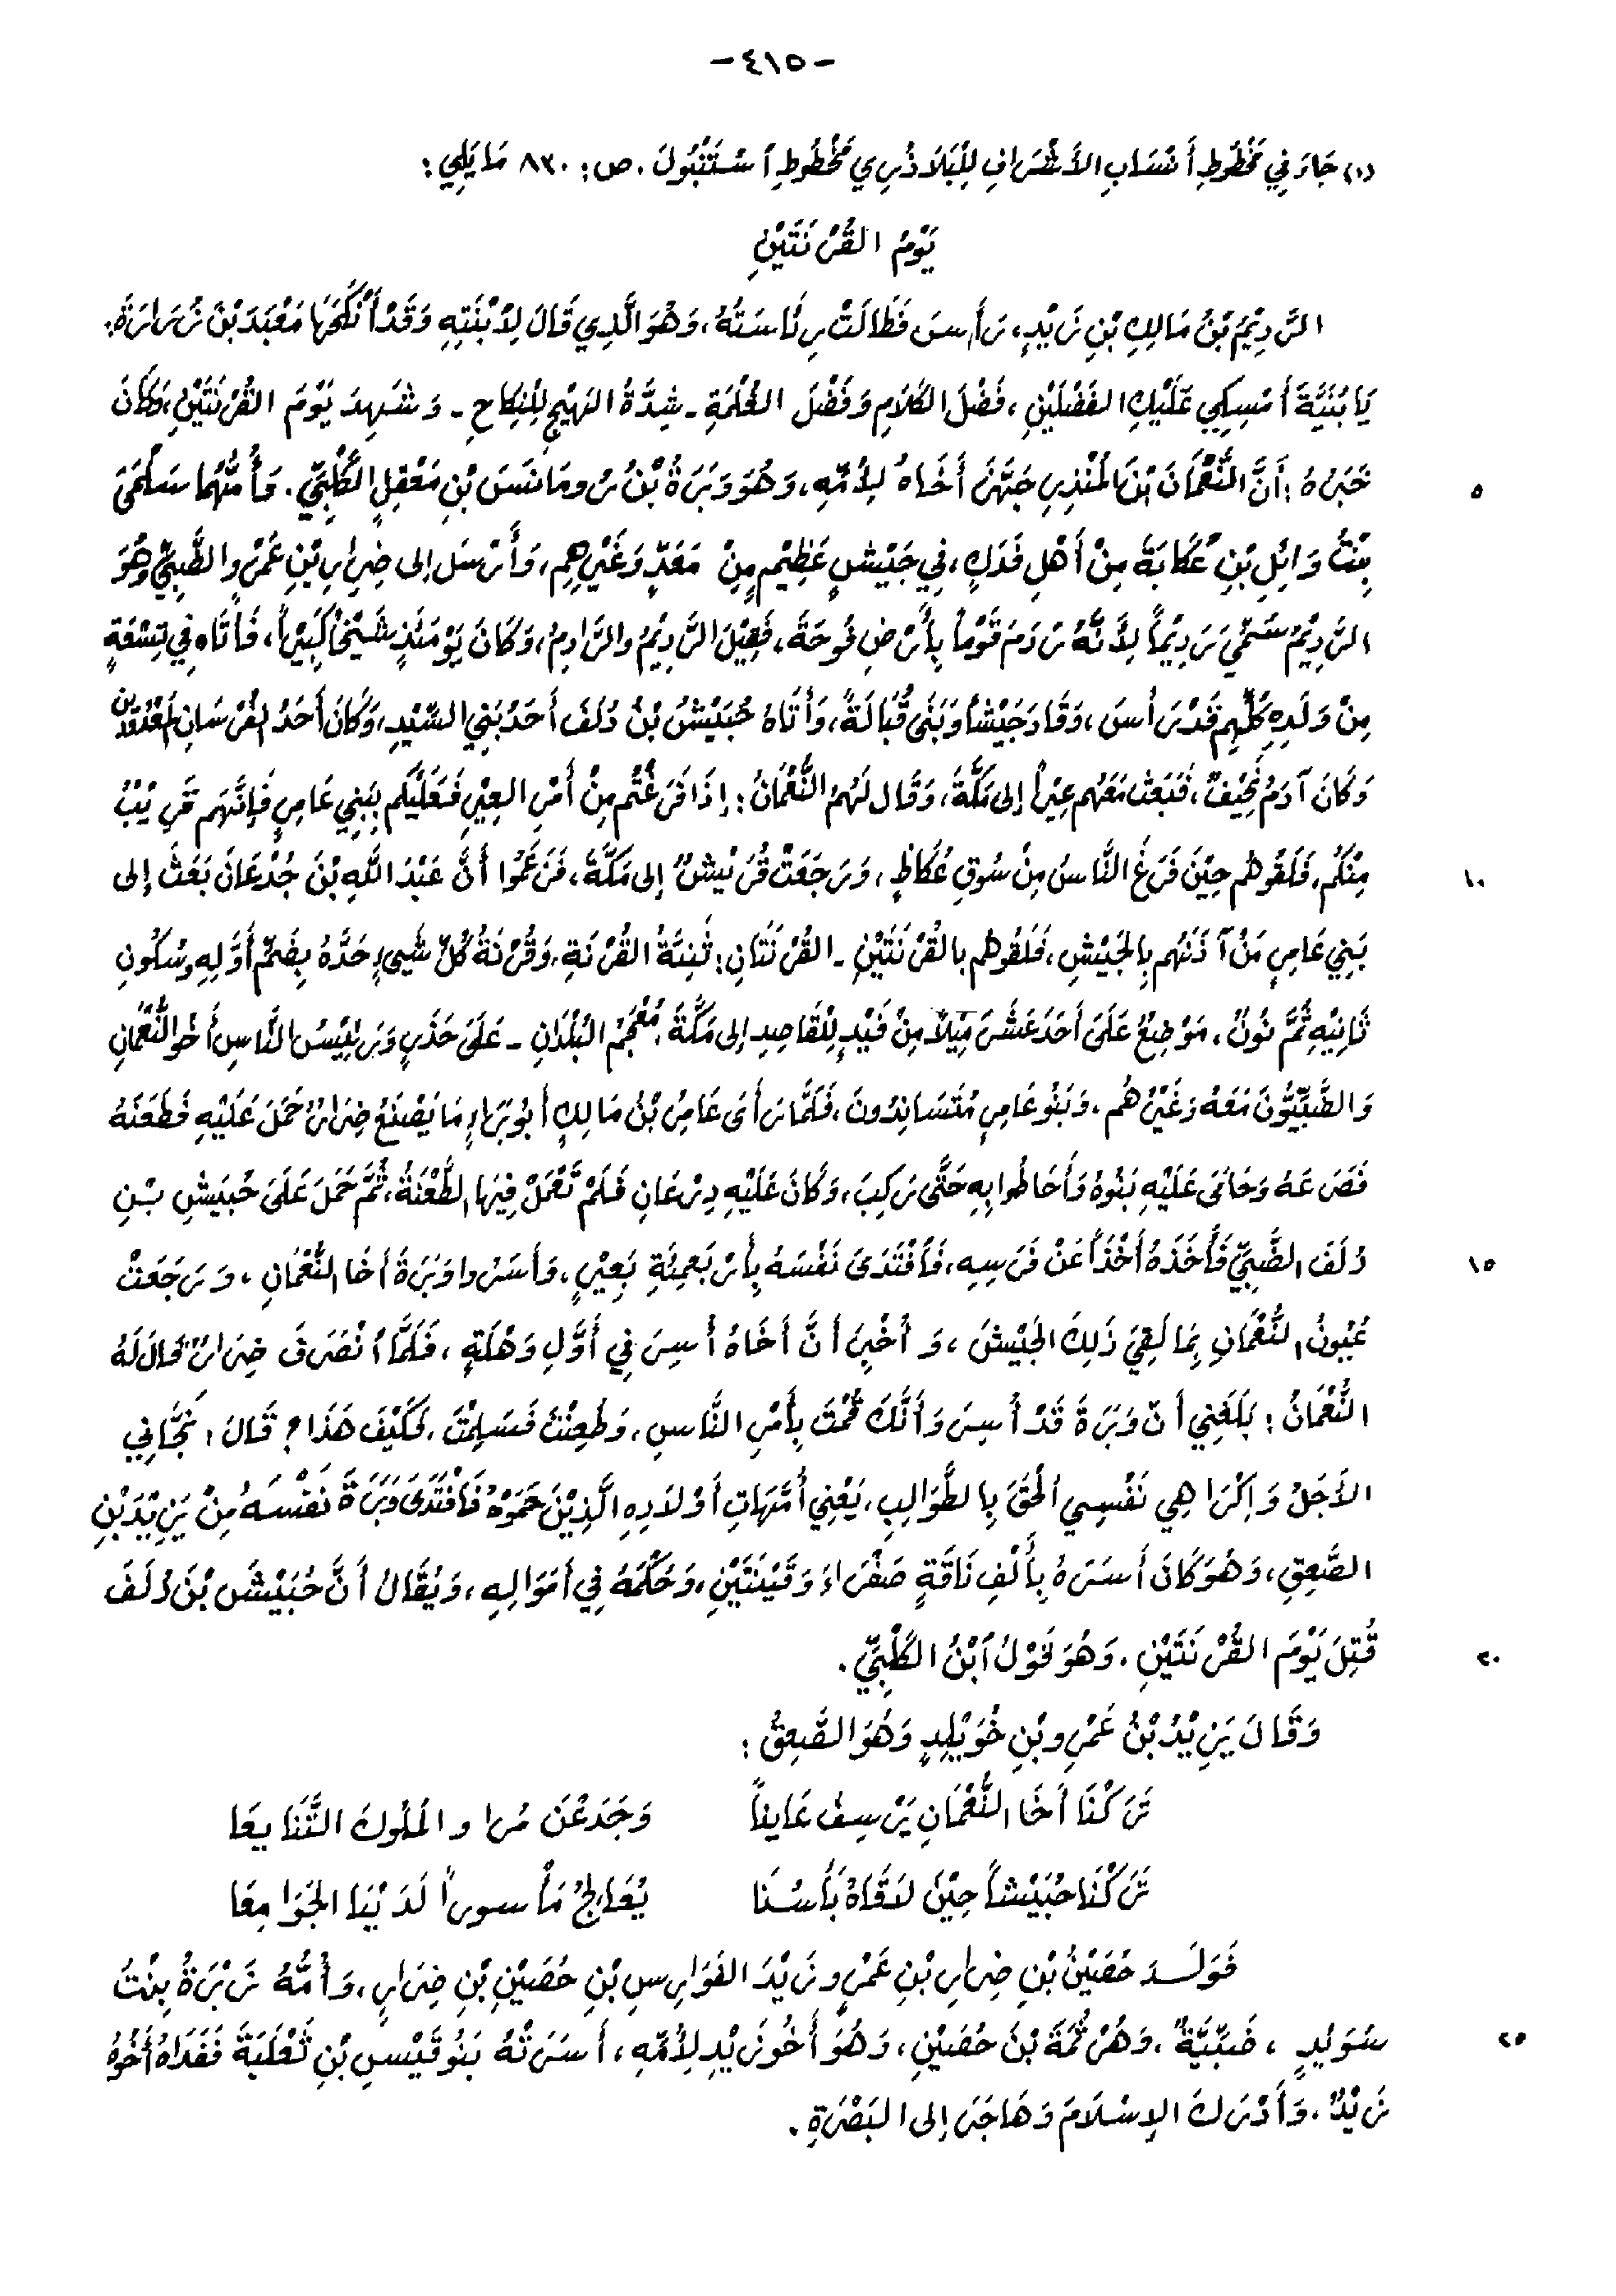 -٤١٥-
(١) جَاءَ فِي مَخْطُوطِ أنْسَابِ الأَشْرَافِ لِلْبَلاَذُرِيّ مَخْطُوطِ اسْتَنْبُولَ. ص: ٨٣٠ مَا يَلِي:
يَوْمُ القُرْنَتَيْنِ
الرَّدِيْمُ بْنُ مَالِكِ بْنِ زَيْدٍ، رَأَسَ فَطَالَتْ رِئَاسَتُهُ، وَهُوَ الَّذِي قَالَ لاِبْنَتِهِ وَقَدْ أَنْكَحَهَا مَعْبَدَ بْنَ زُرَارَةَ:
يَا بُنَيَّةَ أَمْسِكِي عَلَيْكِ الفَضْلَيْنِ، فَضْلَ الكَلاَمِ وَفَضْلَ الغُلْمَةِ - شِدَّةُ الهَيْجِ لِلْنِكَاحِ - وَشَهِدَ يَوْمَ القُرْنَتَيْنِ، وَكَانَ
٥ خَبَرُهُ: أَنَّ النُّعْمَانَ بْنَ المُنْذِرِ جَهَّزَ أَخَاهُ لِأُمِّهِ، وَهُوَ وَبَرَةُ بْنُ رُومَانِسَ بْنِ مَعْقِلٍ الكَلْبِيِّ. وَأُمُّهُمَا سَلْمَىَ
بِنْتُ وَائِلِ بْنِ عُكَابَةَ مِنْ أَهْلِ فَدَكِ، فِي جَيْشٍ عَظِيْمٍ مِنْ مَعَدٍّ وَغَيْرِهِمِ، وَأَرْسَل إلى ضِرَارِ بْنِ عَمْرٍو الضَّبِيِّ وَهُوَ
الرَّدِيْمُ سُمِّيَ رَدِيْمَاً لِأَنَّهُ رَدَمَ قَوْمَاً بِأَرْضِ فُوحَةَ، فَقِيْلَ الرَّدِيْمُ والرَّادِمُ، وَكَانَ يَوْمَئذٍ شَيْخَاً كَبِيْرَاً، فَأَتَاه فِي تِسْعَةٍ
مِنْ وَلَدِهِ كُلِّهِم قَدْ رَأَسَ، وَقَادَ جَيْشَاً وَبَنَى قُبَّالَةً، وَأَتَاهُ حُبَيْشُ بْنُ دُلَفَ أَحَدُ بَنِي السِّيْدِ، وَكَانَ أَحَدُ الفُرْسَانِ المَعْدُودِينَ
وَكَانَ آدَمُ نَحِيْفٌ، فَبَعَثَ مَعَهُم عِيْرَاً إلى مَكَّةَ، وَقَال لَهُمُ النُّعْمَانُ: إذَا فَرَغْتُم مِنْ أَمْرِ العِيْرِ فَعَلَيْكُم بِبَنِي عَامِرٍ فَإنَّهَم قَرِيْبٌ
١٠ مِنْكُم، فَلَقُوهُم حِيْنَ فَرَغَ النَّاسُ مِنْ سُوقِ عُكَاظٍ، وَرَجَعَتْ قُرَيْشٌ إلى مَكَّةَ، فَزَعَمُوا أَنَّ عَبْدَ اللَّهِ بْنَ جُدْعَانَ بَعَثَ إلى
بَنِي عَامِرٍ مَنْ آذَنَهُم بِالجَيْشِ، فَلَقُوهُم بالقُرْنَتَيْنِ - القُرْنَتَانِ: تَثْنِيَّةُ القُرْنَةِ، وَقُرْنَةُ كُلِّ شَيْءٍ حَدَّهُ بِضَمِّ أَوَّلِهِ وَسُكُونِ
ثَانِيْهِ ثُمَّ نُونٌ، مَوْضِعٌ عَلَىَ أَحَدَ عَشَرَ مِيْلاً مِنْ فَيْدٍ لِلْقَاصِدِ إلى مَكَّةَ، مُعْجَمُ البُلْدَانِ - عَلَىَ حَذَرٍ وَرَئِيْسُ النَّاسِ أَخُو النُّعْمَانِ
وَالضَّبِّيُّونَ مَعَهُ وَغَيْرُهُم، وَبَنُو عَامِرٍ مُتَسَانِدُونَ، فَلَمَّا رَأَى عَامِرُ بْنُ مَالِكٍ أبُو بَرَاءٍ مَا يَصْنَعُ ضِرَارُ حَمَلَ عَلَيْهِ فَطَعَنَهُ
فَصَرَعَهُ وَحَامَى عَلَيْهِ بَنُوهُ وَأَحَاطُوا بِهِ حَتَّى رَكِبَ، وَكَانَ عَلَيْهِ دِرْعَانِ فَلَمْ تَعْمَلْ فِيْهَا الطَّعْنَةُ، ثُمَّ حَمَلَ عَلَىَ حُبَيْشِ بْنِ
١٥ دُلَفَ الضَّبِيِّ فَأَخَذَهُ أَخْذَاً عَنْ فَرَسِهِ، فَافْتَدَىَ نَفْسَهُ بِأَرْبَعِمِئَةِ بَعِيْرٍ، وَأَسَرُوا وَبَرَةَ أخَا النُّعْمَانِ، وَرَجَعَتْ
عُيُونُ النُّعْمَانِ بِمَا لَقِيَ ذَلِكَ الجَيْشُ، وَأُخْبِرَ أنَّ أَخَاهُ أُسِرَ فِي أَوَّلِ وَهْلَةٍ، فَلَمَّا انْصَرَفَ ضِرَارُ قَالَ لَهُ
النُّعْمَانُ: بَلَغَنِي أنّ وَبَرَةَ قَدْ أُسِرَ وَأَنَّكَ قُمْتَ بِأَمْرِ النَّاسِ، وَطُعِنْتَ فَسَلِمْتَ، فَكَيْفَ هَذَا؟ قَالَ: نَجَّانِي
الأَجَلُ وَإكْرَاهِي نَفْسِي الحَقَ بِالطَّوَالِبِ، يَعْنِي أُمَّهَاتِ أَوْلاَدِهِ الَّذِيْنَ حَمَوْهُ فَافْتَدَىَ وَبَرَةَ نَفْسَهُ مِنْ يَزِيْدَ بْنِ
الصَّعِقِ، وَهُوَ كَانَ أَسَرَهُ بِأَلْفِ نَاقَةٍ صَفْرَاءَ وَقَيْنَتَيْنِ، وَحَكَّمَهُ فِي أمَوَالِهِ، وَيُقَالُ أنَّ حُبَيْشَ بْنَ دُلَفَ
٢٠ قُتِلَ يَوْمَ القُرْنَتَيْنِ. وَهُوَ قَوْلُ ابْنُ الكَلْبِيِّ.
وَقَالَ يَزِيْدُ بْنُ عَمْرِو بْنِ خُوَيْلِدٍ وَهُوَ الصَّعِقُ:
تَرَكْنَا أَخَا النُّعْمَانِ يَرْسِفُ عَانِياً وَجَدَعْنَ مُرا والمُلُوكَ الصَّنَايعَا
تَرَكْنَا حُبَيْشاً حِيْنَ لاَقَاهُ بَأْسُنَا يُعَالِجُ مَأسوراً لَدَيْنَا الجَوَامِعَا
فَوَلَدَ حُصَيْنُ بْنِ ضِرَارِ بْنِ عَمْرٍو زَيْدَ الفَوَارِسِ بْنِ حُصَيْنِ بْنِ ضِرَارٍ، وَأُمُّهُ زَبْرَةُ بِنْتُ
٢٥ سُوَيْدٍ، ضَبِّيَّةٌ، وَهَرْثَمَةَ بْنَ حُصَيْنِ، وَهُوَ أَخُو زَيْدٍ لِأُمِّهِ، أَسَرَتْهُ بَنُو قَيْسِ بْنِ ثَعْلَبَةَ فَفَدَاهُ أَخُوهُ
زَيْدٌ. وَأَدْرَكَ الإسْلاَمَ وَهَاجَرَ إلى البَصْرَةِ.